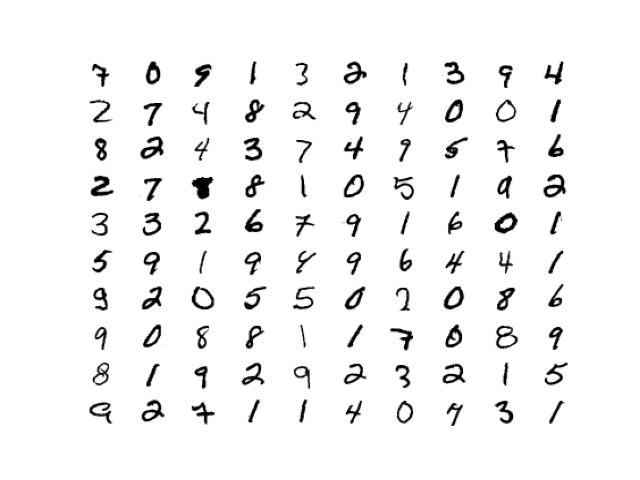 7 0 9 1 3 2 1 3 9 4
2 7 4 8 2 9 4 0 0 1
8 2 4 3 7 4 9 5 7 6
2 7 8 8 1 0 5 1 9 2
3 3 2 6 7 9 1 6 0 1
5 9 1 9 8 9 6 4 4 1
9 2 0 5 5 0 2 0 8 6
9 0 8 8 1 1 7 0 8 9
8 1 9 2 9 2 3 2 1 5
9 2 7 1 1 4 0 7 3 1